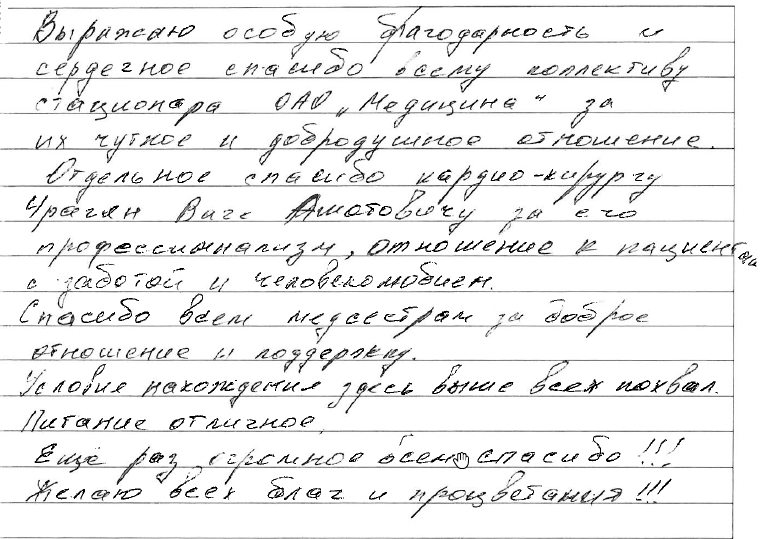 Выражаю особую благодарность и
сердечное спасибо всему коллективу
стационара ОАО „Медицина“ за
их чуткое и добродушное отношение.
Отдельное спасибо кардио-хирургу
Ваге Амотовичу за его
профессионализм, отношение к пациентам
с заботой и человеколюбием.
Спасибо всем медсестрам за доброе
отношение и поддержку.
Условия нахождения здесь выше всех похвал.
Питание отличное.
Ещё раз огромное всем спасибо !!!
Желаю всех благ и процветания !!!